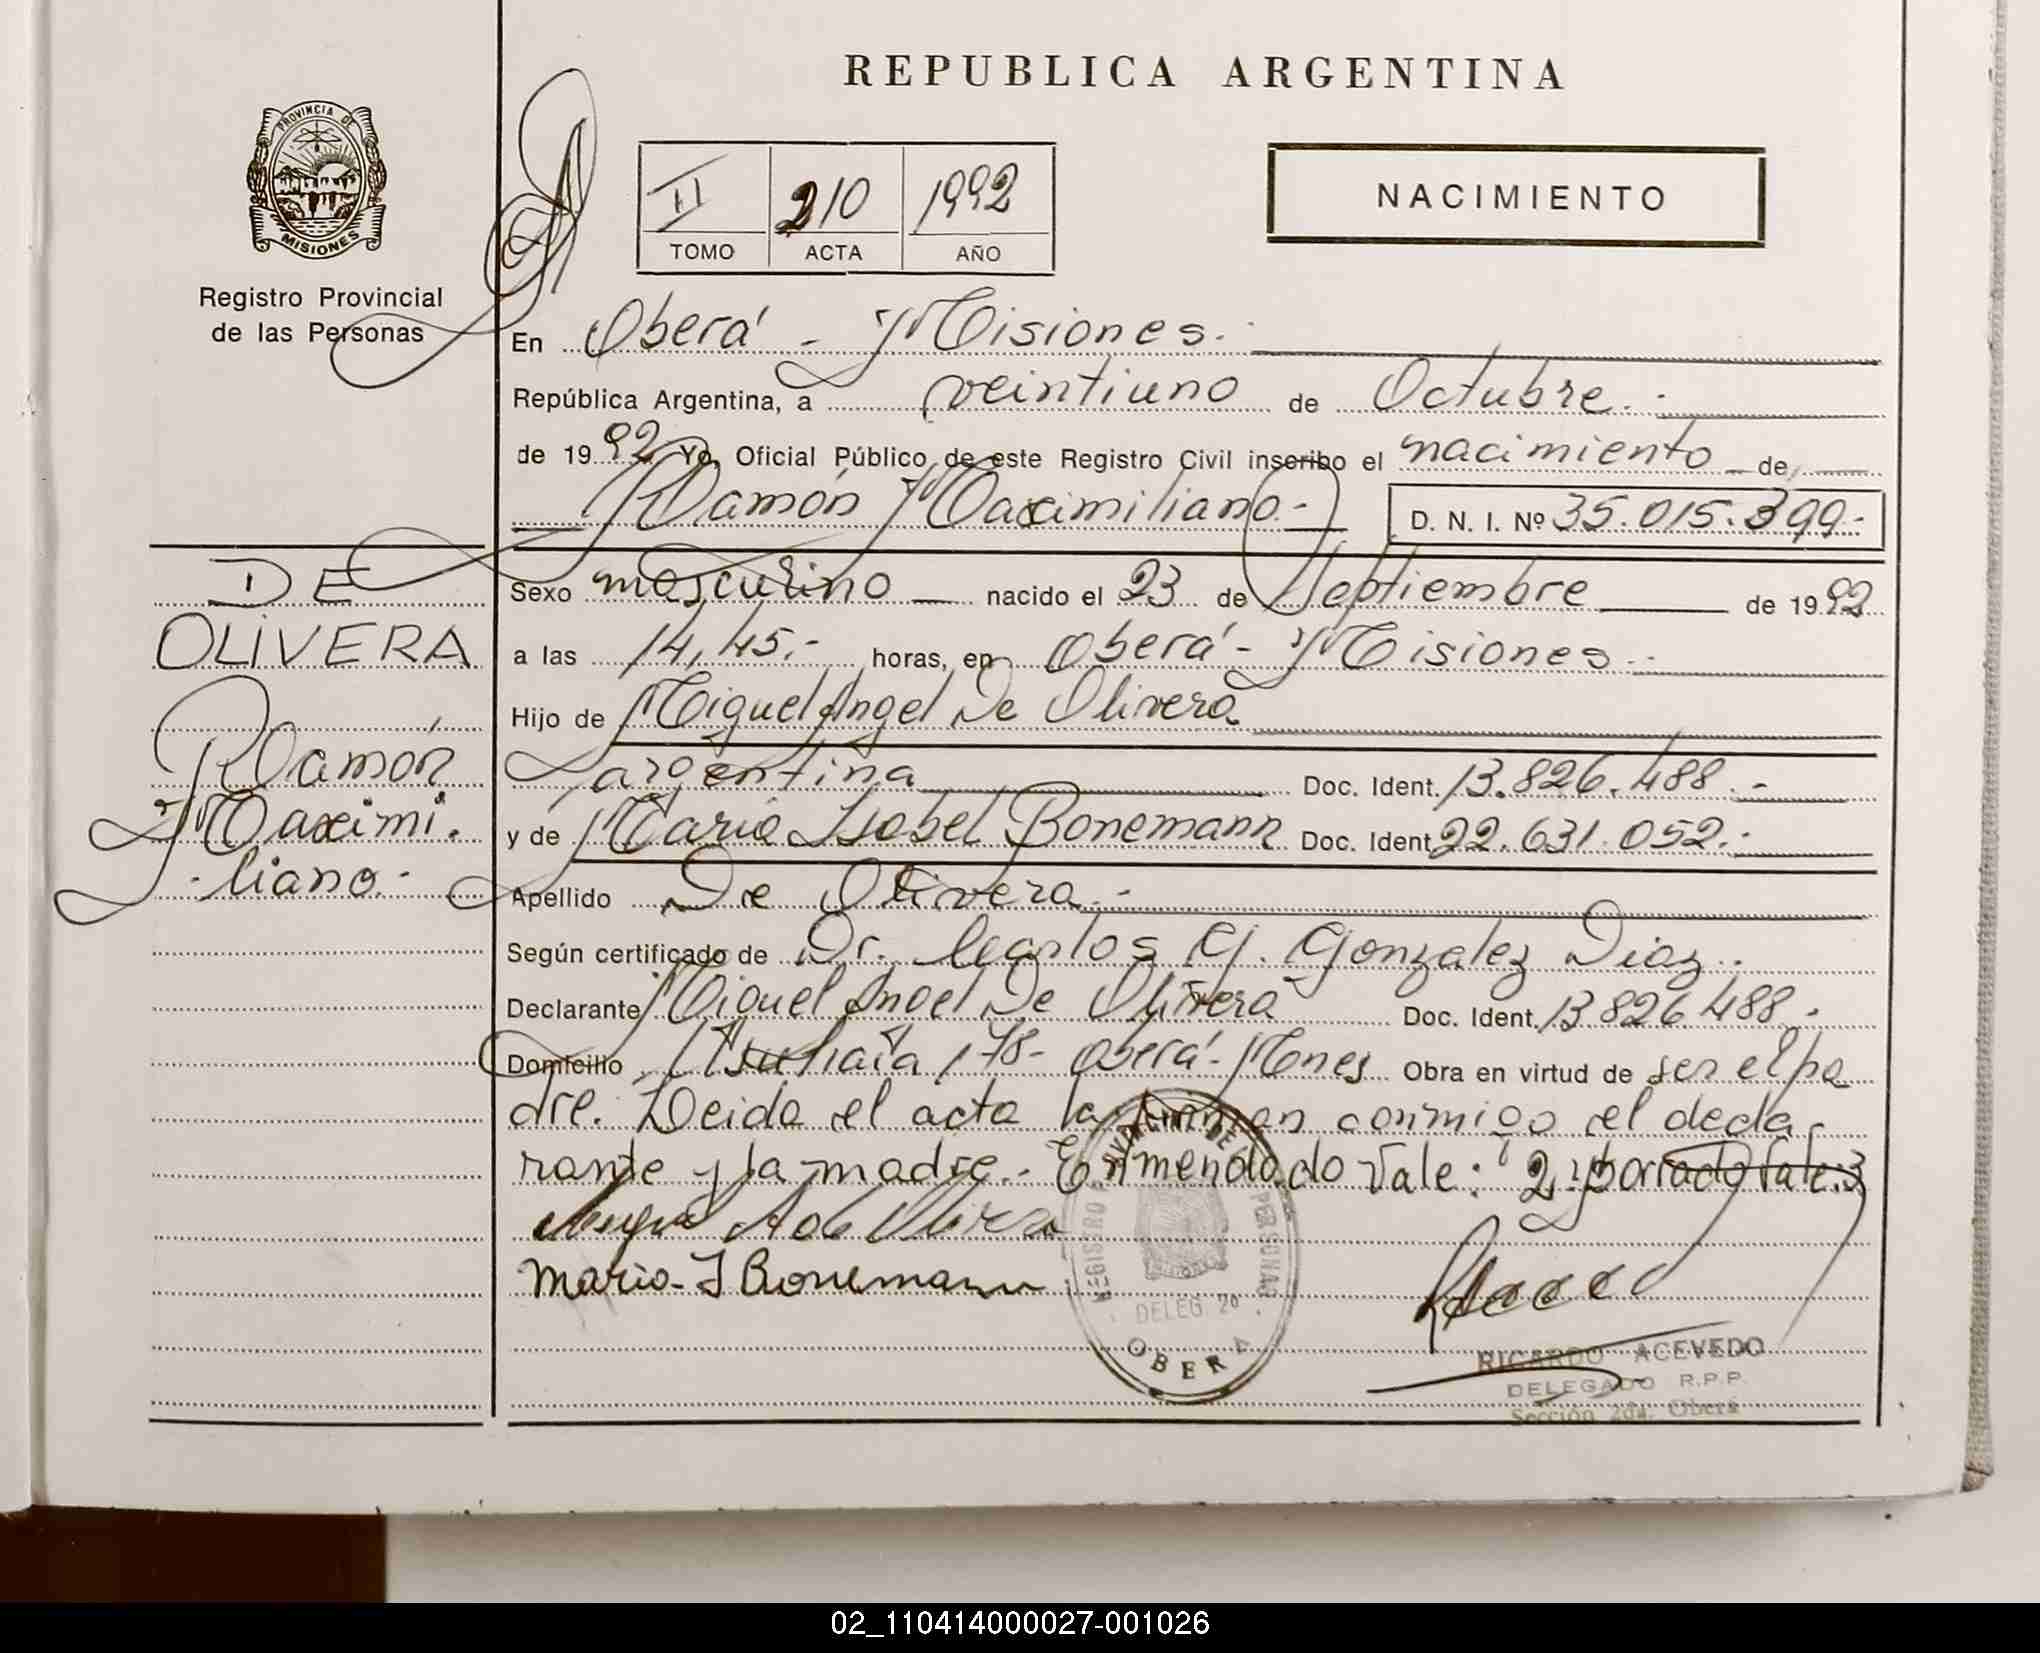 REPUBLICA ARGENTINA
PROVINCIA DE
MISIONES
Registro Provincial
de las Personas
II 210 1992
TOMO ACTA AÑO
NACIMIENTO
En Oberá - Misiones.-
República Argentina, a veintiuno de Octubre.-
de 1992 Yo, Oficial Público de este Registro Civil inscribo el nacimiento de
Ramón Maximiliano.- D. N. I. Nº 35.015.399.-
DE
OLIVERA
Ramón
Maximi.
-liano.-
Sexo masculino nacido el 23 de Septiembre de 1992
a las 14,45.- horas, en Oberá - Misiones.-
Hijo de Miguel Angel De Olivera
argentina Doc. Ident. 13.826.488.-
y de María Isabel Bonemann Doc. Ident. 22.631.052.-
Apellido De Olivera.-
Según certificado de Dr. Carlos G. Gonzalez Diaz.-
Declarante Miguel Angel De Olivera Doc. Ident. 13.826.488.-
Domicilio Ushuaia 178- Oberá - Mnes Obra en virtud de ser el pa
dre. Leida el acta la firman conmigo el decla
rante y la madre.- Enmendado Vale: 2 y borrado Vale: 3
Maria I Bonemann
REGISTRO P. PERSONAS
DELEG 2º
OBERA
RICARDO ACEVEDO
DELEGADO R.P.P.
Sección 2da. Oberá
02_110414000027-001026